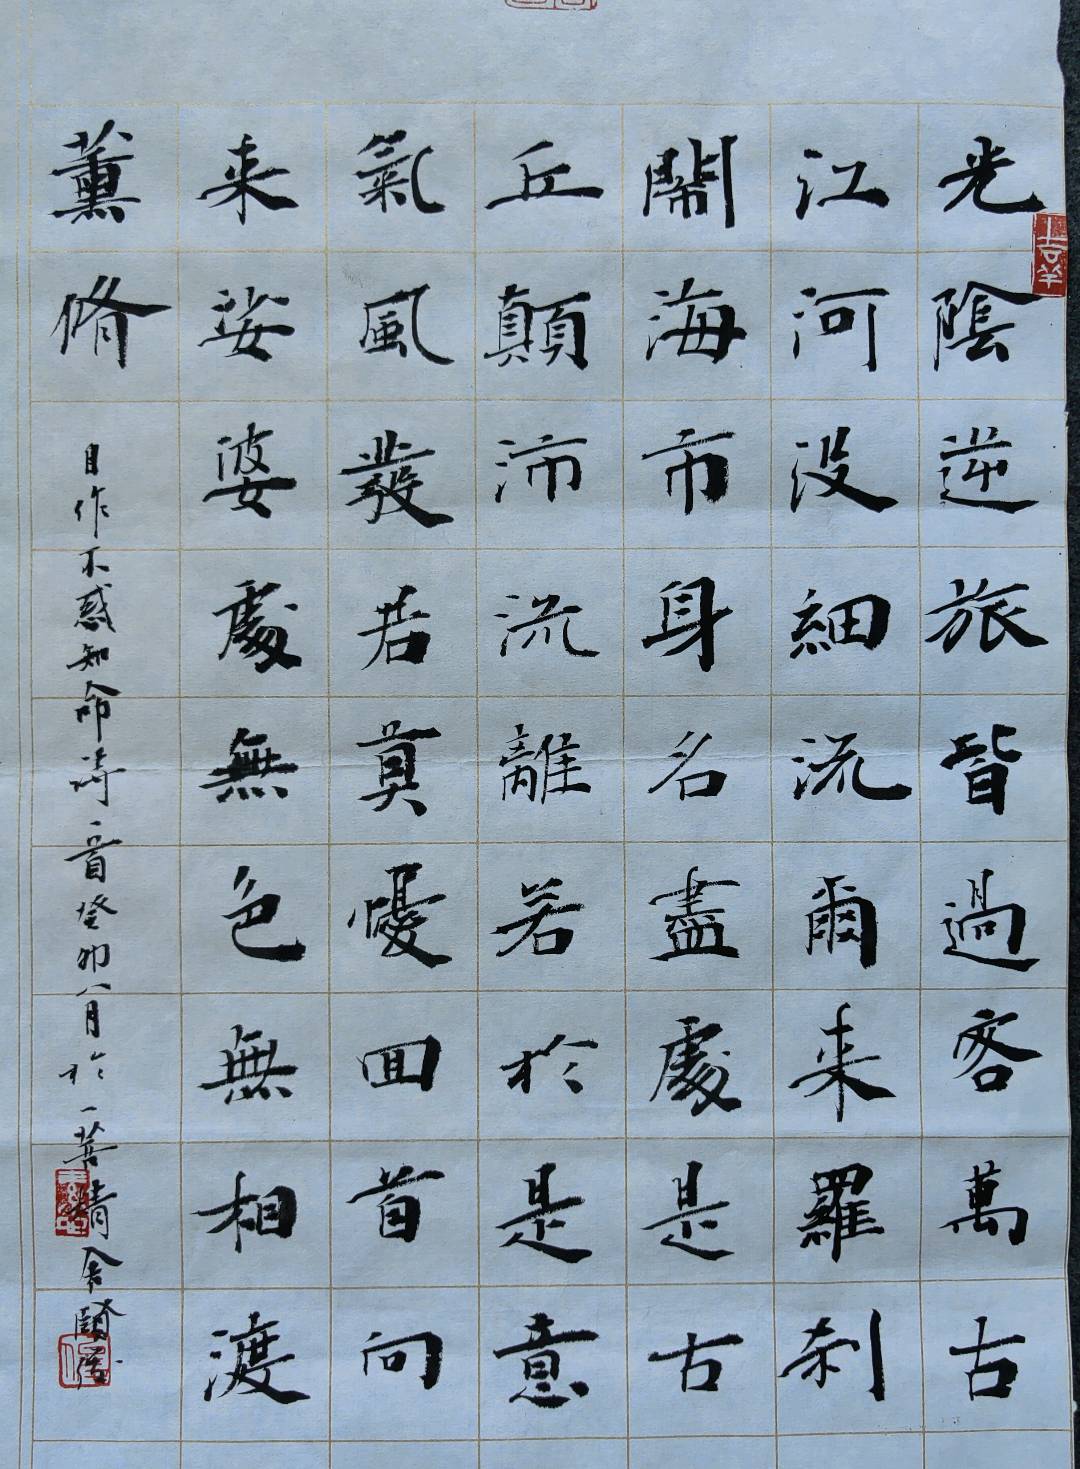 光陰逆旅皆過客萬古
江河没細流爾来羅刹
鬧海市身名盡處是古
丘顛沛流離若於是意
氣風發若莫憂回首向
来娑婆處無色無相渡
薰脩
自作不惑知命詩一首癸卯八月於一菩精舍
吉羊